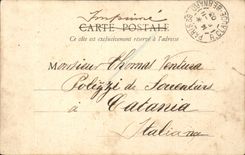 Imprimé
CARTE POSTALE
Ce côté est exclusivement réservé à l'adresse
Monsieur Thomas Ventura
Polizzi de Sorentini
à Catania
Italia